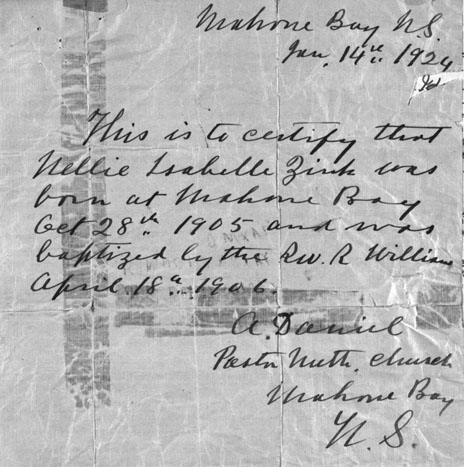 Mahone Bay N.S.
Jan. 14th 1924
This is to certify that
Nellie Isabelle Zink was
born at Mahone Bay
Oct 28th 1905 and was
baptized by the Rev. R Williams
April 18th 1906.
A. Daniel
Pastor Meth. Church
Mahone Bay
N.S.